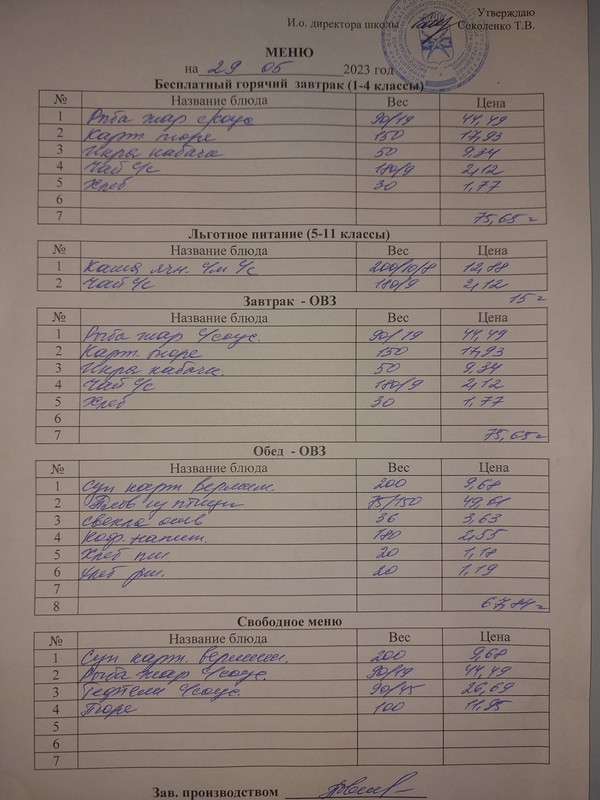 Утверждаю
И.о. директора школы Соколенко Т.В.
МЕНЮ
на 29 05 2023 год
Бесплатный горячий завтрак (1-4 классы)
№ Название блюда Вес Цена
1 Рыба жар с/соус 90/19 44,49
2 Карт. пюре 150 17,93
3 Икра кабачк 50 9,34
4 Чай с/с 180/9 2,12
5 Хлеб 30 1,77
6
7 75,65 г
Льготное питание (5-11 классы)
№ Название блюда Вес Цена
1 Каша ячн. с/м с/с 200/10/8 12,88
2 Чай с/с 180/9 2,12
15 г
Завтрак - ОВЗ
№ Название блюда Вес Цена
1 Рыба жар с/соус. 90/19 44,49
2 Карт. пюре 150 17,93
3 Икра кабачк. 50 9,34
4 Чай с/с 180/9 2,12
5 Хлеб 30 1,77
6
7 75,65 г
Обед - ОВЗ
№ Название блюда Вес Цена
1 Суп карт вермиш. 200 9,68
2 Плов из птицы 75/150 49,61
3 свекла 36 3,63
4 Коф. напит. 180 2,55
5 Хлеб пш. 20 1,18
6 Хлеб рж. 20 1,19
7
8 67,84 г
Свободное меню
№ Название блюда Вес Цена
1 Суп карт. вермиш. 200 9,68
2 Рыба жар с/соус. 90/19 44,49
3 Тефтели с/соус. 90/45 26,69
4 Пюре 100 11,95
5
6
7
Зав. производством